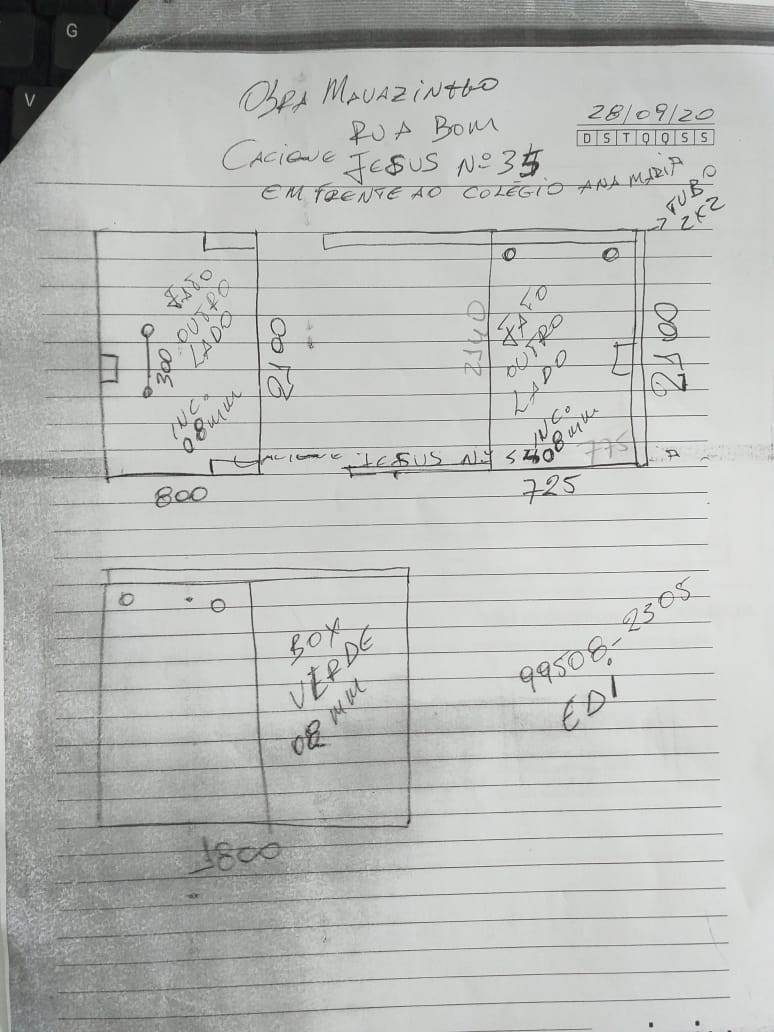 G
V
OBRA MAVAZINHO
RUA BOM
28/09/20
D S T Q Q S S
CACIQUE JESUS Nº 35
EM FRENTE AO COLÉGIO ANA MARIA
TUBO
2X2
OUTRO
LADO
300
INC.
08mm
2100
2140
OUTRO
LADO
INC.
08mm
775
2100
CACIQUE JESUS Nº
800
725
BOX
VERDE
08 mm
99508-2305
EDI
1800